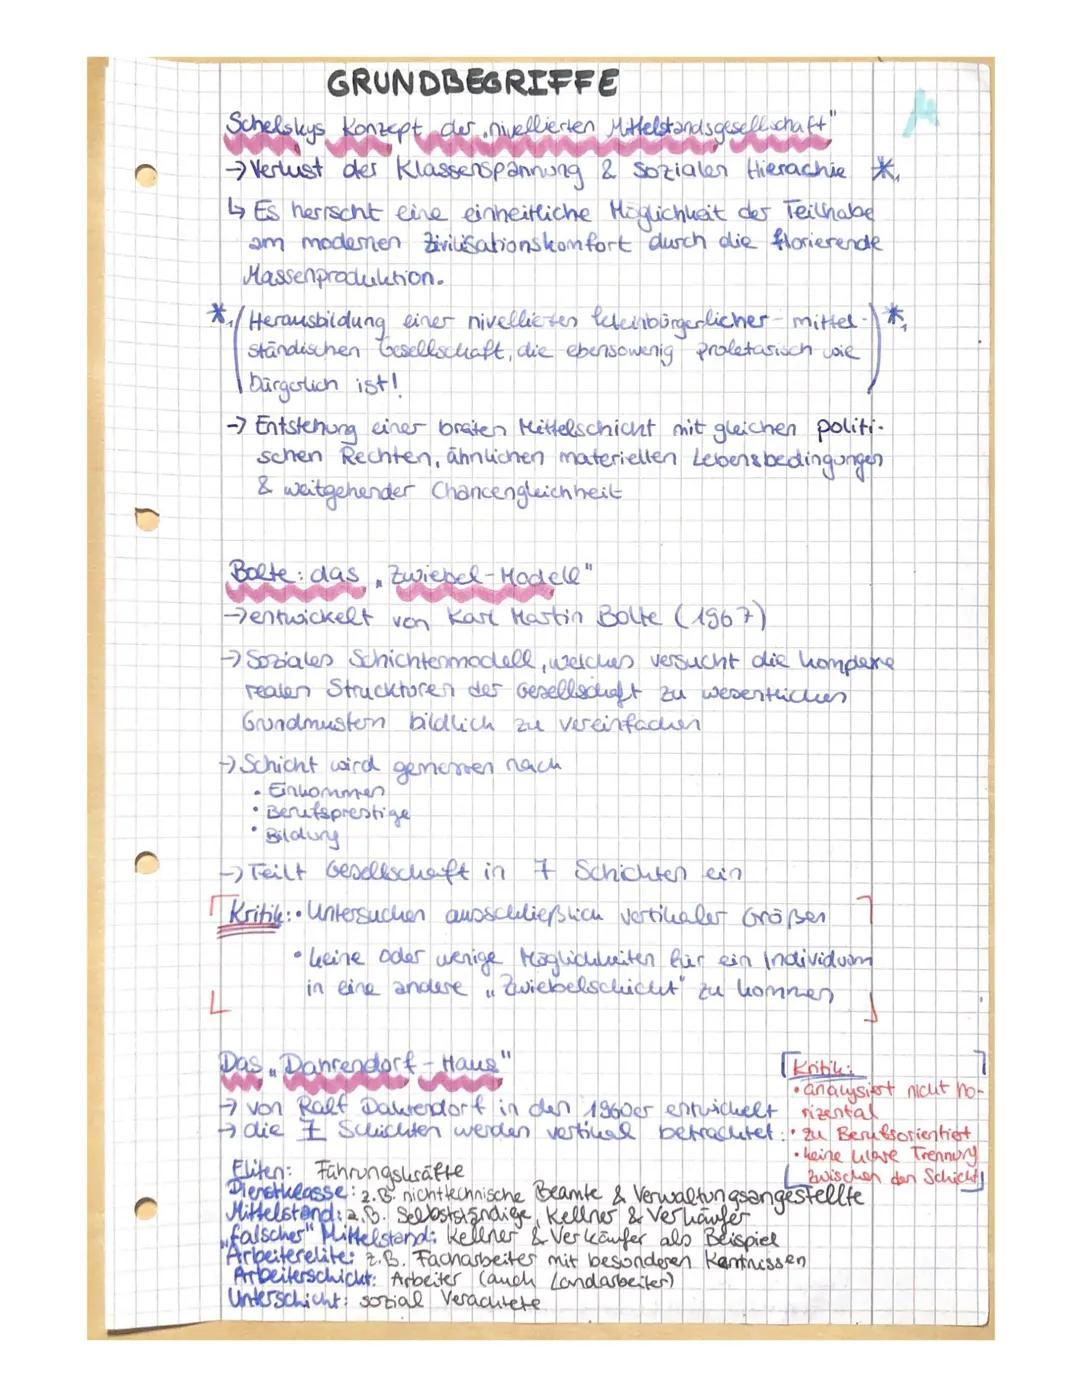 GRUNDBEGRIFFE
Schelskys Konzept der „nivellierten Mittelstandsgesellschaft"
→ Verlust der Klassenspannung & sozialen Hierachie *₁
↳ Es herrscht eine einheitliche Möglichkeit der Teilhabe
am modernen Zivilisationskomfort durch die florierende
Massenproduktion.
*₁ (Herausbildung einer nivellierten kleinbürgerlicher - mittel- ) *₁
ständischen Gesellschaft, die ebensowenig proletarisch wie
bürgerlich ist!
→ Entstehung einer breiten Mittelschicht mit gleichen politi-
schen Rechten, ähnlichen materiellen Lebensbedingungen
& weitgehender Chancengleichheit
Bolte: das „Zwiebel-Modell"
→ entwickelt von Karl Martin Bolte (1967)
→ Soziales Schichtenmodell, welches versucht die komplexe
realen Struckturen der Gesellschaft zu wesentlichen
Grundmustern bildlich zu vereinfachen
→ Schicht wird gemessen nach
• Einkommen
• Berufsprestige
• Bildung
→ Teilt Gesellschaft in 7 Schichten ein
Kritik: • Untersuchen ausschließlich vertikaler Größen
• keine oder wenige Möglichkeiten für ein Individuum
in eine andere „Zwiebelschicht" zu kommen
Das „Dahrendorf-Haus"
→ von Ralf Dahrendorf in den 1960er entwickelt
→ die 7 Schichten werden vertikal betrachtet:
Eliten: Führungskräfte
Dienstklasse: z.B. nichttechnische Beamte & Verwaltungsangestellte
Mittelstand: z.B. Selbstständige, Kellner & Verkäufer
„falscher" Mittelstand: Kellner & Verkäufer als Beispiel
Arbeiterelite: z.B. Facharbeiter mit besonderen Kentnissen
Arbeiterschicht: Arbeiter (auch Landarbeiter)
Unterschicht: sozial Verachtete
Kritik:
• analysiert nicht ho-
rizental
• zu Berufsorientiert
• keine klare Trennung
zwischen den Schicht